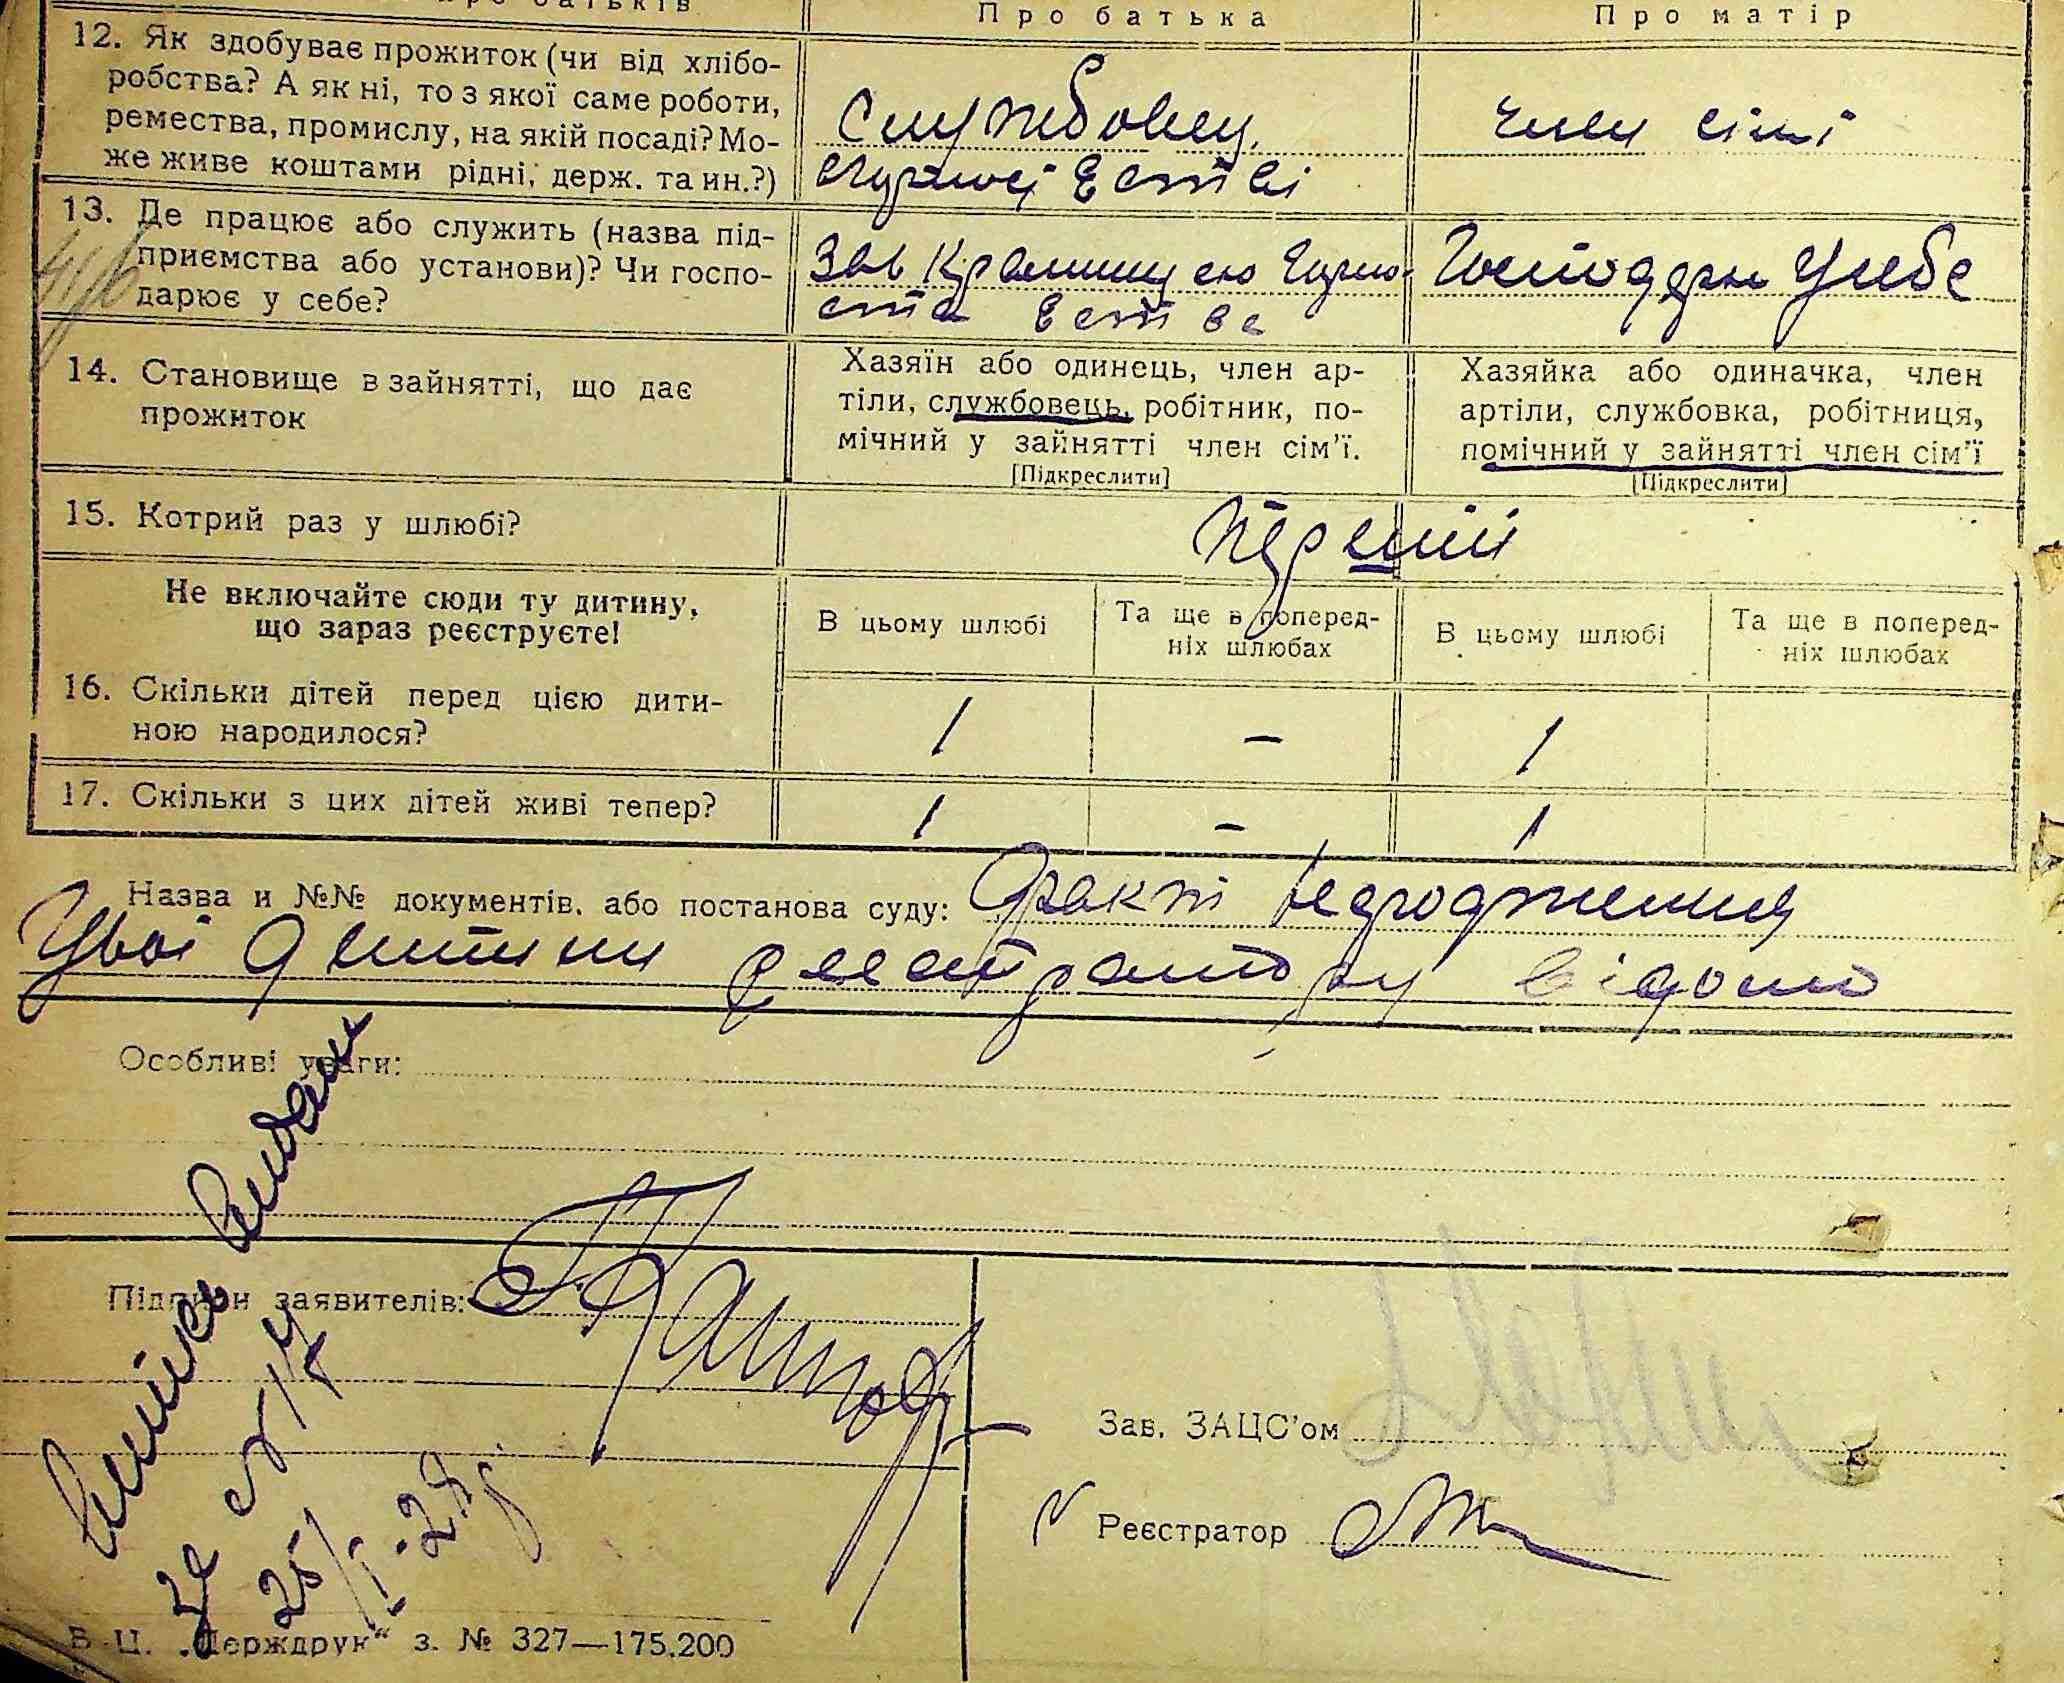 Про батька
Про матір
12. Як здобуває прожиток (чи від хлібо-
робства? А як ні, то з якої саме роботи,
ремества, промислу, на якій посаді? Мо-
же живе коштами рідні, держ. та ин.?)
Службовец
член сімї
13. Де працює або служить (назва під-
приємства або установи)? Чи госпо-
дарює у себе?
Зав Крамницею
Господарює У себе
14. Становище в зайнятті, що дає
прожиток
Хазяїн або одинець, член ар-
тіли, службовець, робітник, по-
мічний у зайнятті член сім'ї.
[Підкреслити]
Хазяйка або одиначка, член
артіли, службовка, робітниця,
помічний у зайнятті член сім'ї
[Підкреслити]
15. Котрий раз у шлюбі?
Перший
Не включайте сюди ту дитину,
що зараз реєструєте!
В цьому шлюбі
Та ще в поперед-
ніх шлюбах
В цьому шлюбі
Та ще в поперед-
ніх шлюбах
16. Скільки дітей перед цією дити-
ною народилося?
1 – 1
17. Скільки з цих дітей живі тепер?
1 – 1
Назва и №№ документів, або постанова суду: Факт народження
дитини реєстратору відомо
Особливі уваги:
Підписи заявителів:
Зав. ЗАЦС'ом
Реєстратор
Виписъ видана
За №
25/I-28р
В. Ц. „Держдрук“ з. № 327—175.200